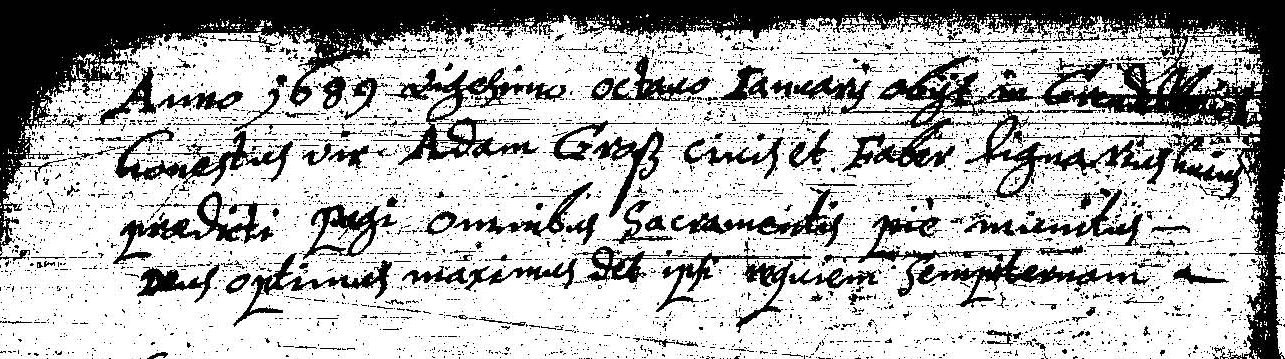 Anno 1689 vigesimo octavo Ianuarij obijt in
honestus vir Adam Groß civis et Faber lignarius huius
praedicti pagi omnibus Sacramentis piè munitus —
Deus optimus maximus det ipsi requiem sempiternam